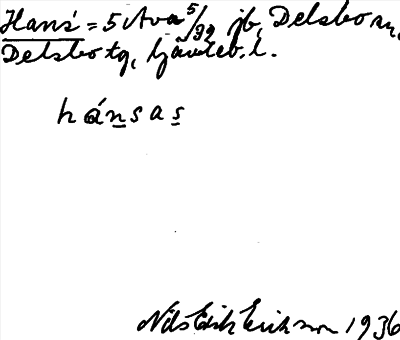 Hans = 5 Ava 5/39 jb, Delsbo sn,
Delsbo tg, Gävleb. l.
hánsas
Nils Erik Erikson 1936